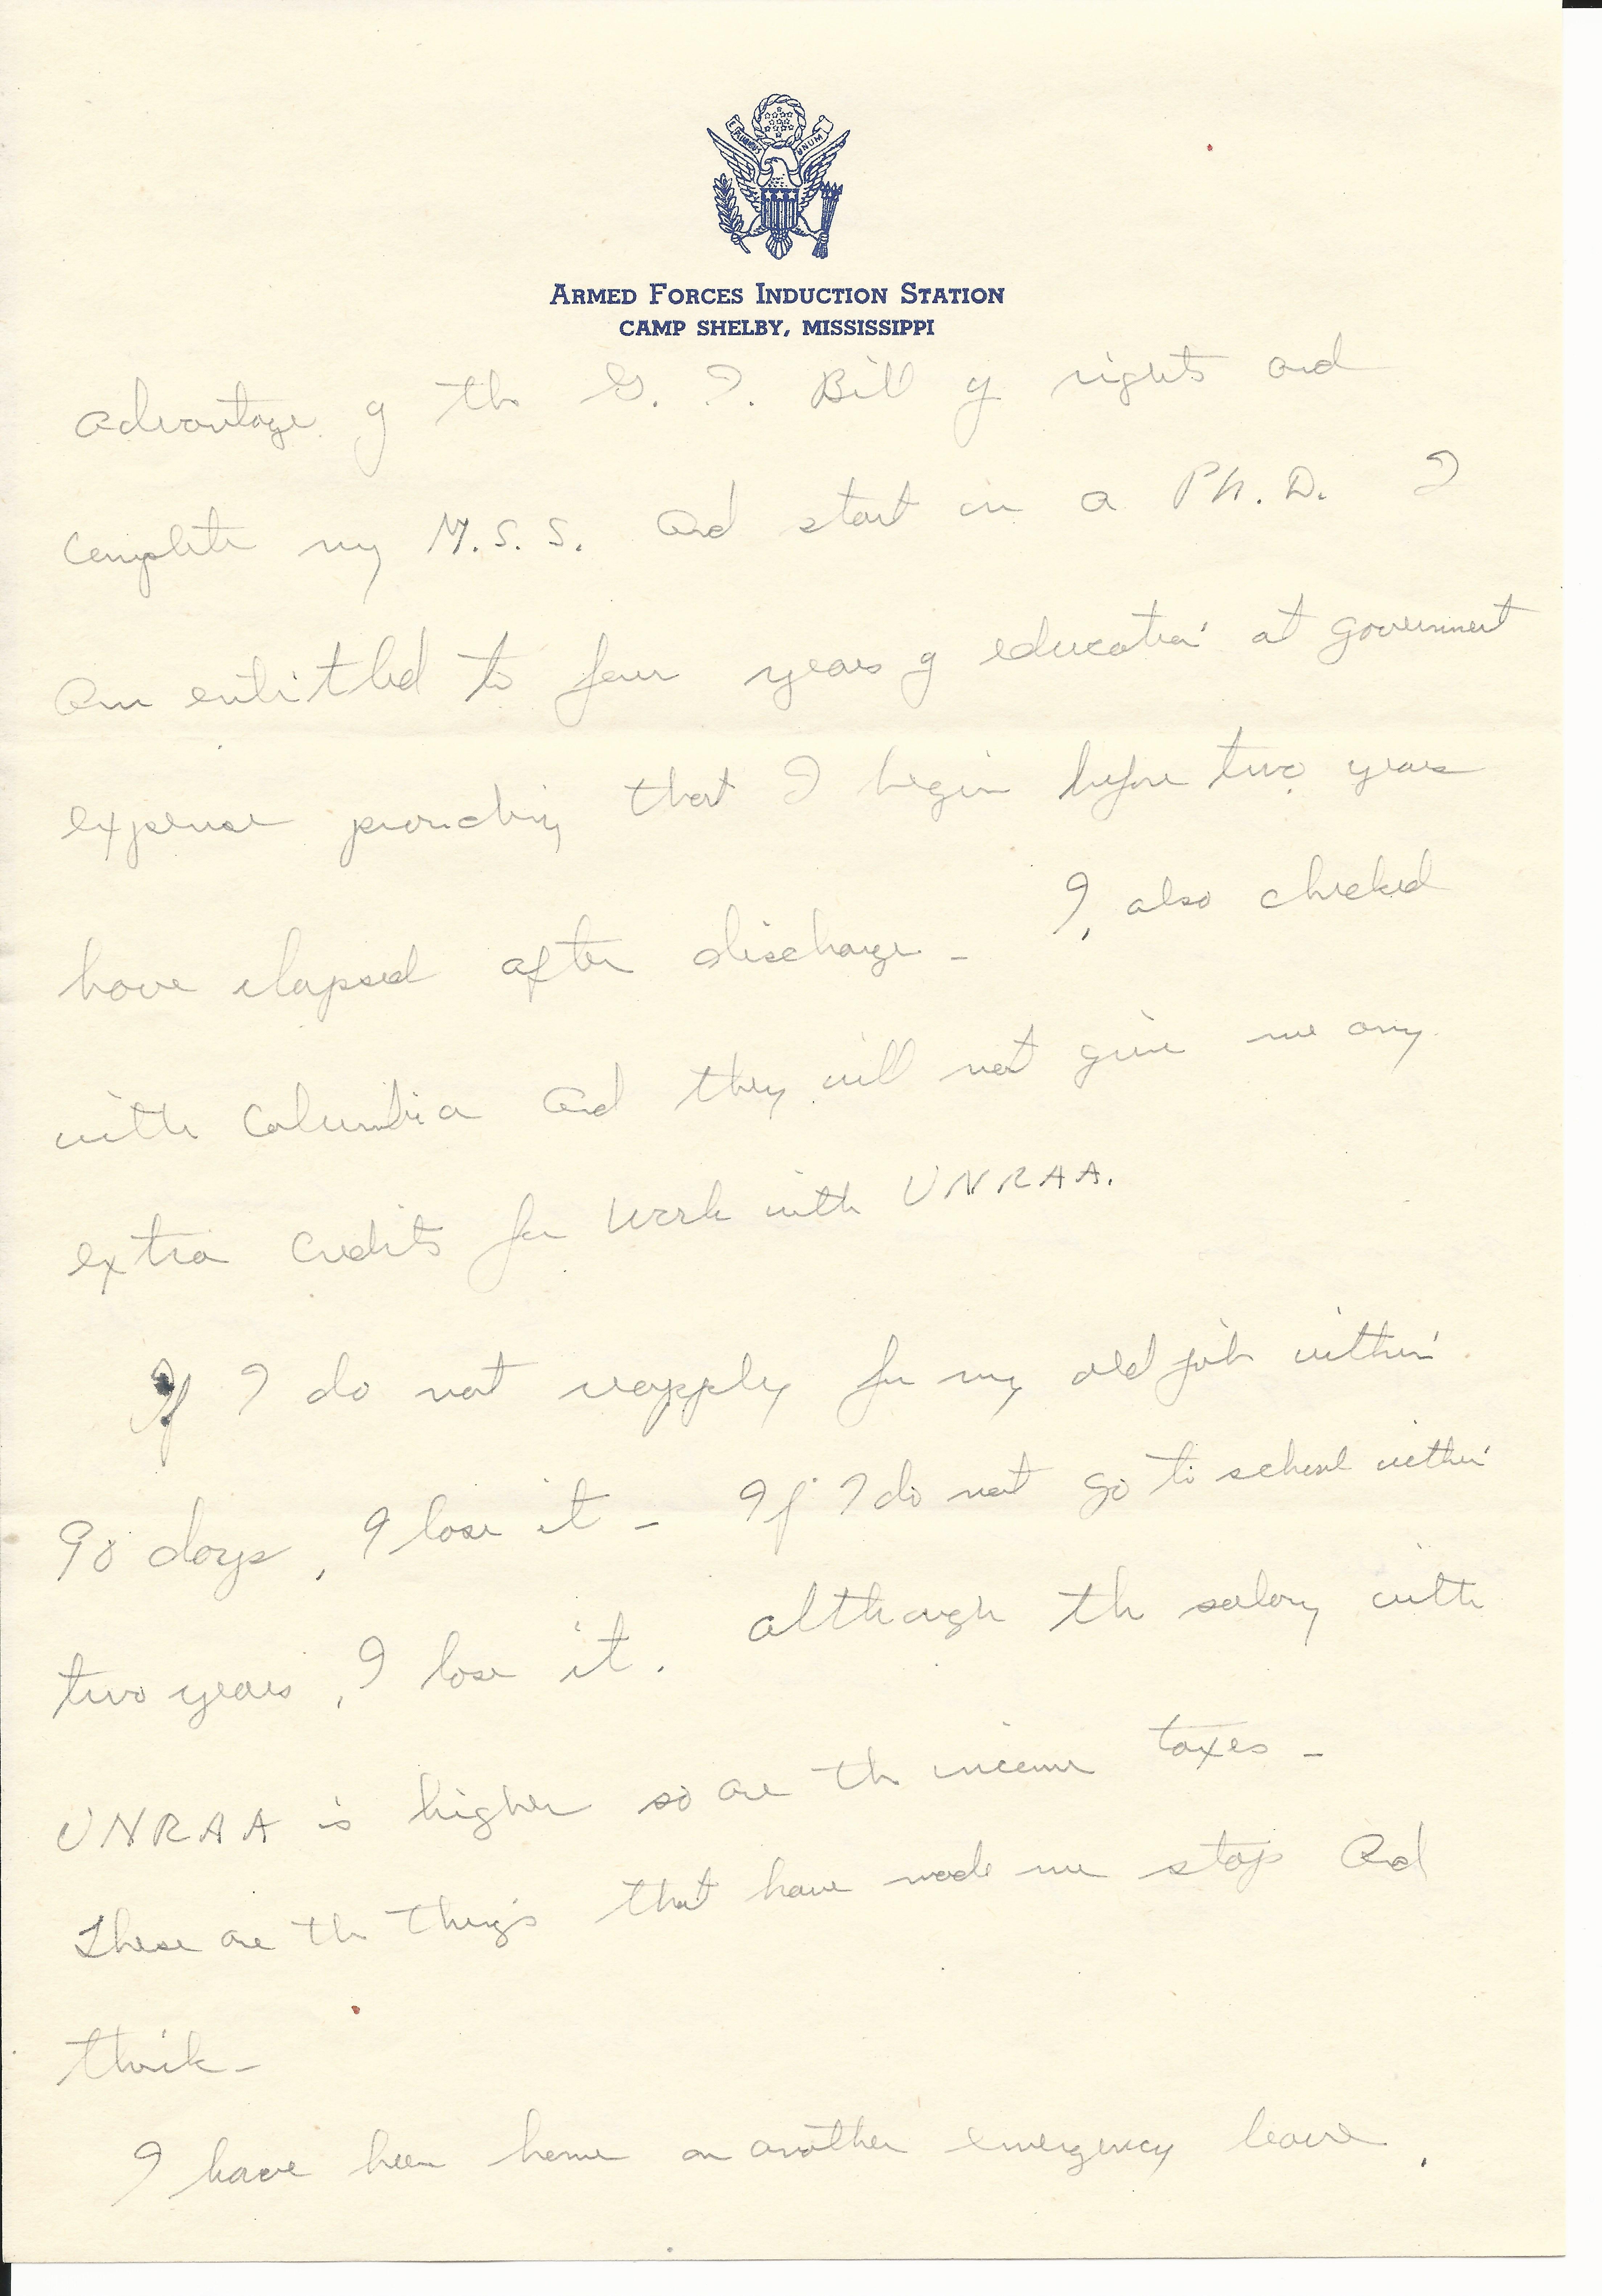 E PLURIBUS UNUM
ARMED FORCES INDUCTION STATION
CAMP SHELBY, MISSISSIPPI
advantage of the G. I. Bill of rights and
complete my M.S.S. and start on a Ph.D. I
am entitled to four years of education at government
expense providing that I begin before two years
have elapsed after discharge - I, also checked
with Columbia and they will not give me any
extra credits for work with UNRAA.
If I do not reapply for my old job within
90 days, I lose it - If I do not go to school within
two years, I lose it. Although the salary with
UNRAA is higher so are the income taxes -
These are the things that have made me stop and
think -
I have been home on another emergency leave,